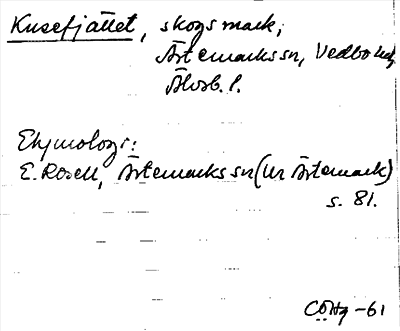 Kusefjättet, skogsmark,
Ärtemarks sn, Vedbo hd,
Älvsb. l.
Etymologi:
E. Rosell, Ärtemarks sn (ur Ärtemark)
s. 81.
CÖHg -61